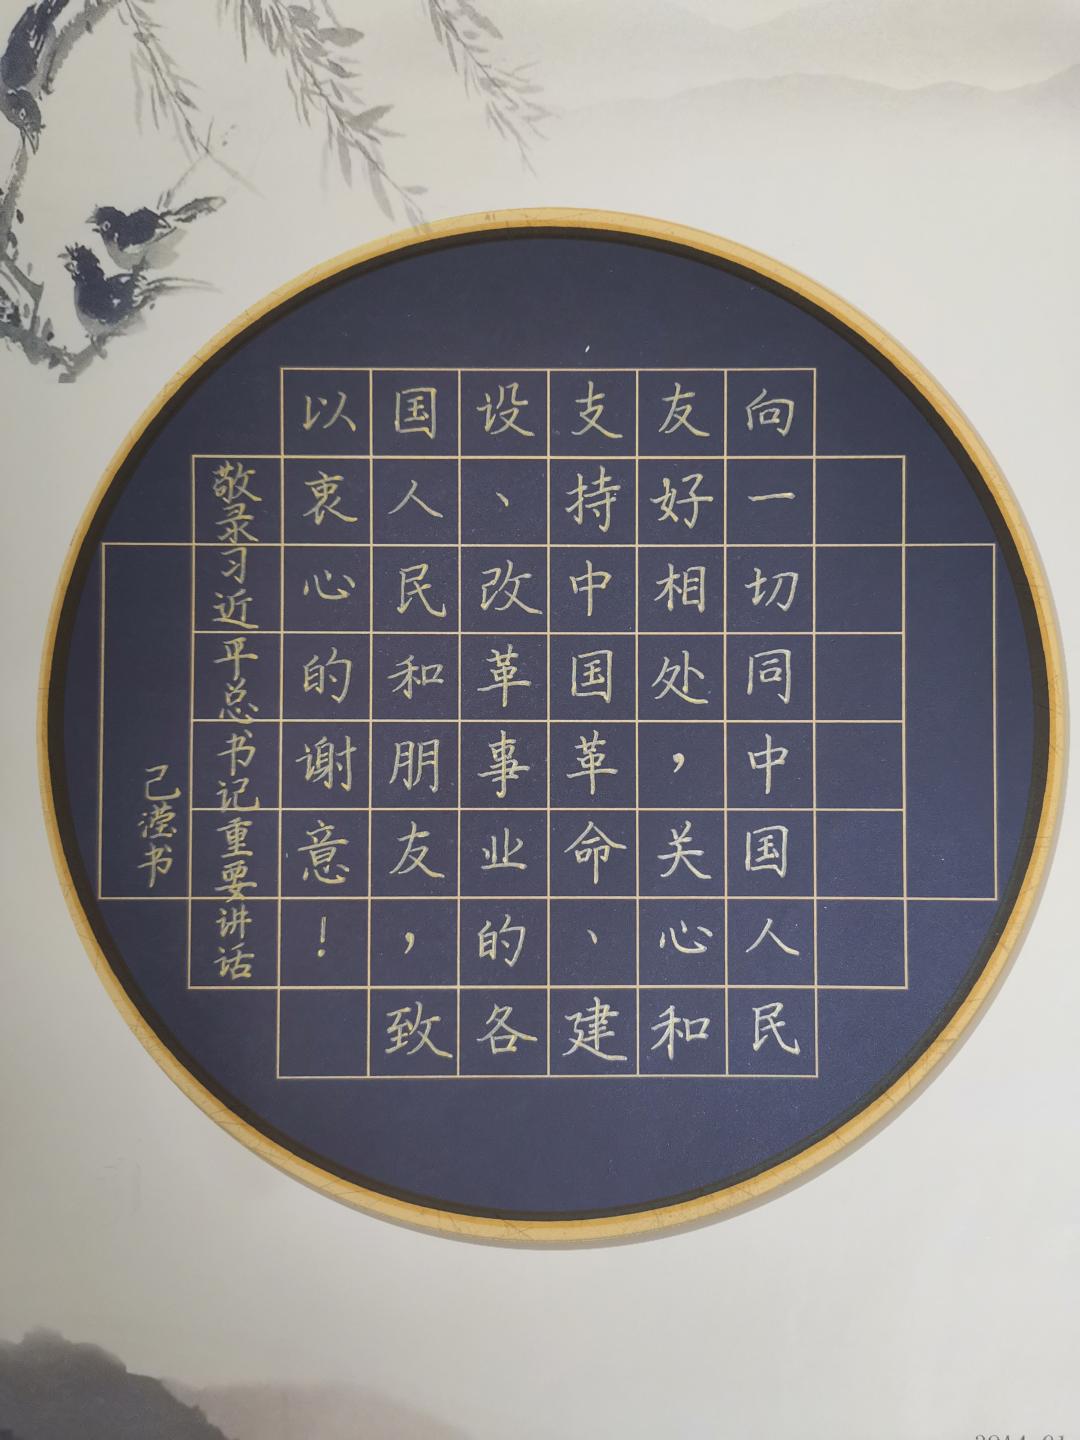 向一切同中国人民
友好相处，关心和
支持中国革命、建
设、改革事业的各
国人民和朋友，致
以衷心的谢意！
敬录习近平总书记重要讲话
己滢书